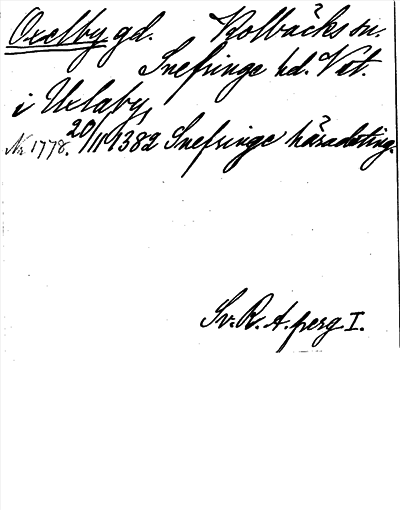 Oxelby gd. Kolbäcks sn.
Snefringe hd. Vstm.
i Uxlaby,
Nr 1778. 20/11 1382 Snefringe häradsting.
Sv. R. A. perg I.